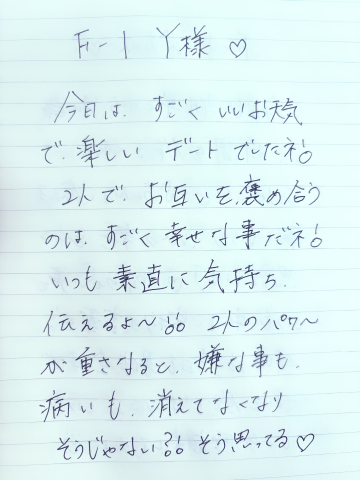 F-1 Y様♡
今日は、すごくいいお天気
で、楽しいデートでしたネ!!
2人で、お互いを、褒め合う
のは、すごく幸せな事だネ!!
いつも素直に気持ち、
伝えるよ〜!! 2人のパワ〜
が重さなると、嫌な事も、
病いも、消えてなくなり
そうじゃない?!! そう思ってる♡